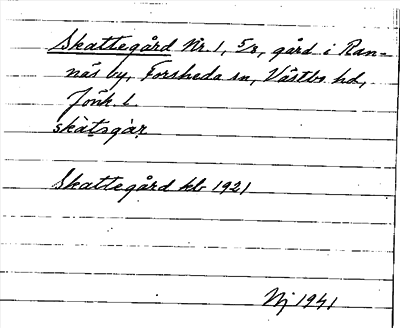 Skattegård Nr. 1, 5/8, gård i Ran-
näs by, Forsheda sn, Västbo hd,
Jönk. l.
skàtsgàr
Skattegård kb 1921
Nj 1941